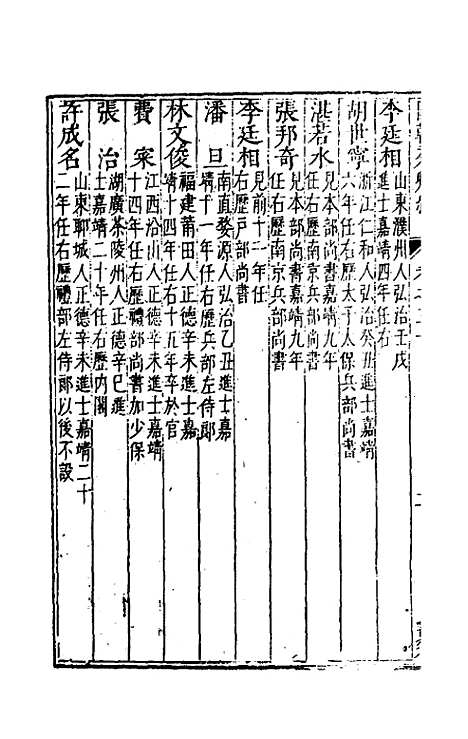 李廷相
山東濮州人弘治壬戌
進士嘉靖四年任右
胡世寧
浙江仁和人弘治癸丑進士嘉靖
六年任右歷太子太保兵部尚書
湛若水
見本部尚書嘉靖九年
任右歷南京兵部尚書
張邦奇
見本部尚書嘉靖九年
任右歷南京兵部尚書
李廷相
見前十一年任
右歷戶部尚書
潘旦
南直婺源人弘治乙丑進士嘉
靖十一年任右歷兵部左侍郎
林文俊
福建莆田人正德辛未進士嘉
靖十四年任右十五年卒於官
費寀
江西鉛山人正德辛未進士嘉靖
十四年任右歷禮部尚書加少保
張治
湖廣茶陵州人正德辛巳進
士嘉靖二十年任右歷內閣
許成名
山東聊城人正德辛未進士嘉靖二十
二年任右歷禮部左侍郎以後不設